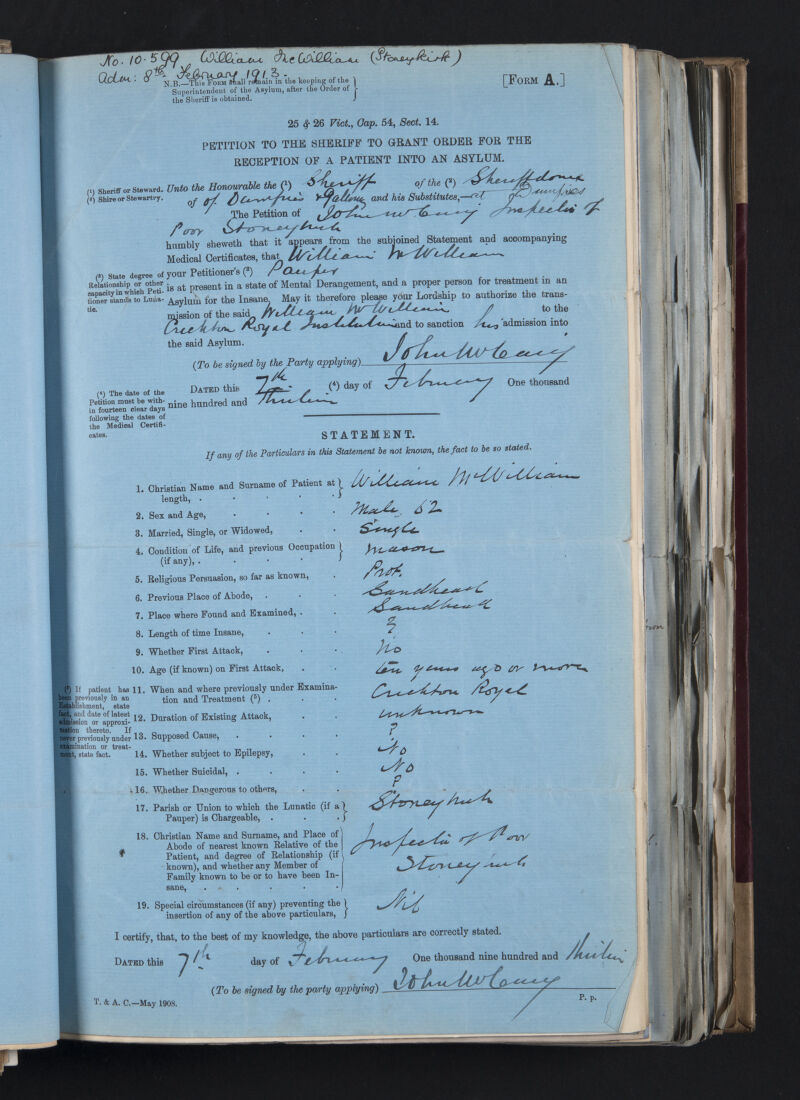 No. 10.599 William McWilliam (Stoneykirk)
Adm: 8th February 1913.
N.B.—This Form shall remain in the keeping of the
Superintendent of the Asylum, after the Order of
the Sheriff is obtained.
[Form A.]
25 & 26 Vict., Cap. 54, Sect. 14.
PETITION TO THE SHERIFF TO GRANT ORDER FOR THE
RECEPTION OF A PATIENT INTO AN ASYLUM.
(1) Sheriff or Steward.
(2) Shire or Stewartry.
Unto the Honourable the (1) Sheriff of the (2) Sheriffdoms
of of Dumfries & Galloway and his Substitutes,—at Dumfries
The Petition of John Inspector of
Poor Stoneykirk
humbly sheweth that it appears from the subjoined Statement and accompanying
Medical Certificates, that William McWilliam
(3) State degree of
Relationship or other
capacity in which Peti-
tioner stands to Luna-
tic.
your Petitioner's (3) Pauper
is at present in a state of Mental Derangement, and a proper person for treatment in an
Asylum for the Insane, May it therefore please your Lordship to authorize the trans-
mission of the said William McWilliam to the
Crichton Royal Institution and to sanction his admission into
the said Asylum.
(To be signed by the Party applying) John
(4) The date of the
Petition must be with-
in fourteen clear days
following the dates of
the Medical Certifi-
cates.
Dated this 7th (4) day of February One thousand
nine hundred and Thirteen
STATEMENT.
If any of the Particulars in this Statement be not known, the fact to be so stated.
1. Christian Name and Surname of Patient at length, . William McWilliam
2. Sex and Age, Male, 62
3. Married, Single, or Widowed, Single
4. Condition of Life, and previous Occupation (if any), . Mason
5. Religious Persuasion, so far as known, Prot.
6. Previous Place of Abode, . Sandhead
7. Place where Found and Examined, . Sandhead
8. Length of time Insane, ?
9. Whether First Attack, No
10. Age (if known) on First Attack, ten years ago or more
(5) If patient has
been previously in an
Establishment, state
fact, and date of latest
admission or approxi-
mation thereto. If
never previously under
examination or treat-
ment, state fact.
11. When and where previously under Examina-
tion and Treatment (5) . Crichton Royal
12. Duration of Existing Attack, unknown
13. Supposed Cause, ?
14. Whether subject to Epilepsy, No
15. Whether Suicidal, . No
16. Whether Dangerous to others, ?
17. Parish or Union to which the Lunatic (if a
Pauper) is Chargeable, . Stoneykirk
18. Christian Name and Surname, and Place of
Abode of nearest known Relative of the
Patient, and degree of Relationship (if
known), and whether any Member of
Family known to be or to have been In-
sane,
Inspector of Poor
Stoneykirk
19. Special circumstances (if any) preventing the
insertion of any of the above particulars, Nil
I certify, that, to the best of my knowledge, the above particulars are correctly stated.
Dated this 7th day of February One thousand nine hundred and thirteen
(To be signed by the party applying) John
T. & A. C.—May 1908.
P. p.